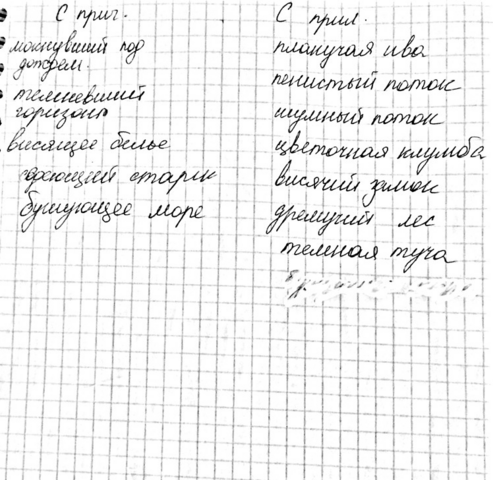 С прич.
мокнувший под
дождем.
темневший
горизонт
висящее белье
старик
бушующее море
С прил.
плакучая ива
пенистый поток
шумный поток
цветочная клумба
висячий замок
дремучий лес
темная туча